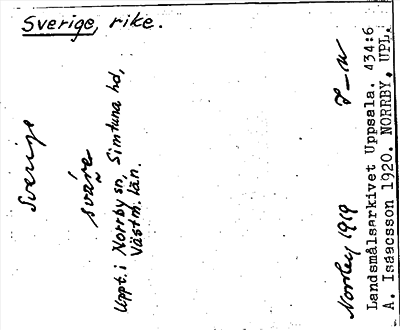 Sverige, rike.
Sverige
svárẽ
Uppt. i Norrby sn, Simtuna hd,
Västm. län.
Norrby 1919
Landsmålsarkivet Uppsala. 434:6
A. Isaacsson 1920. NORRBY, UPL.